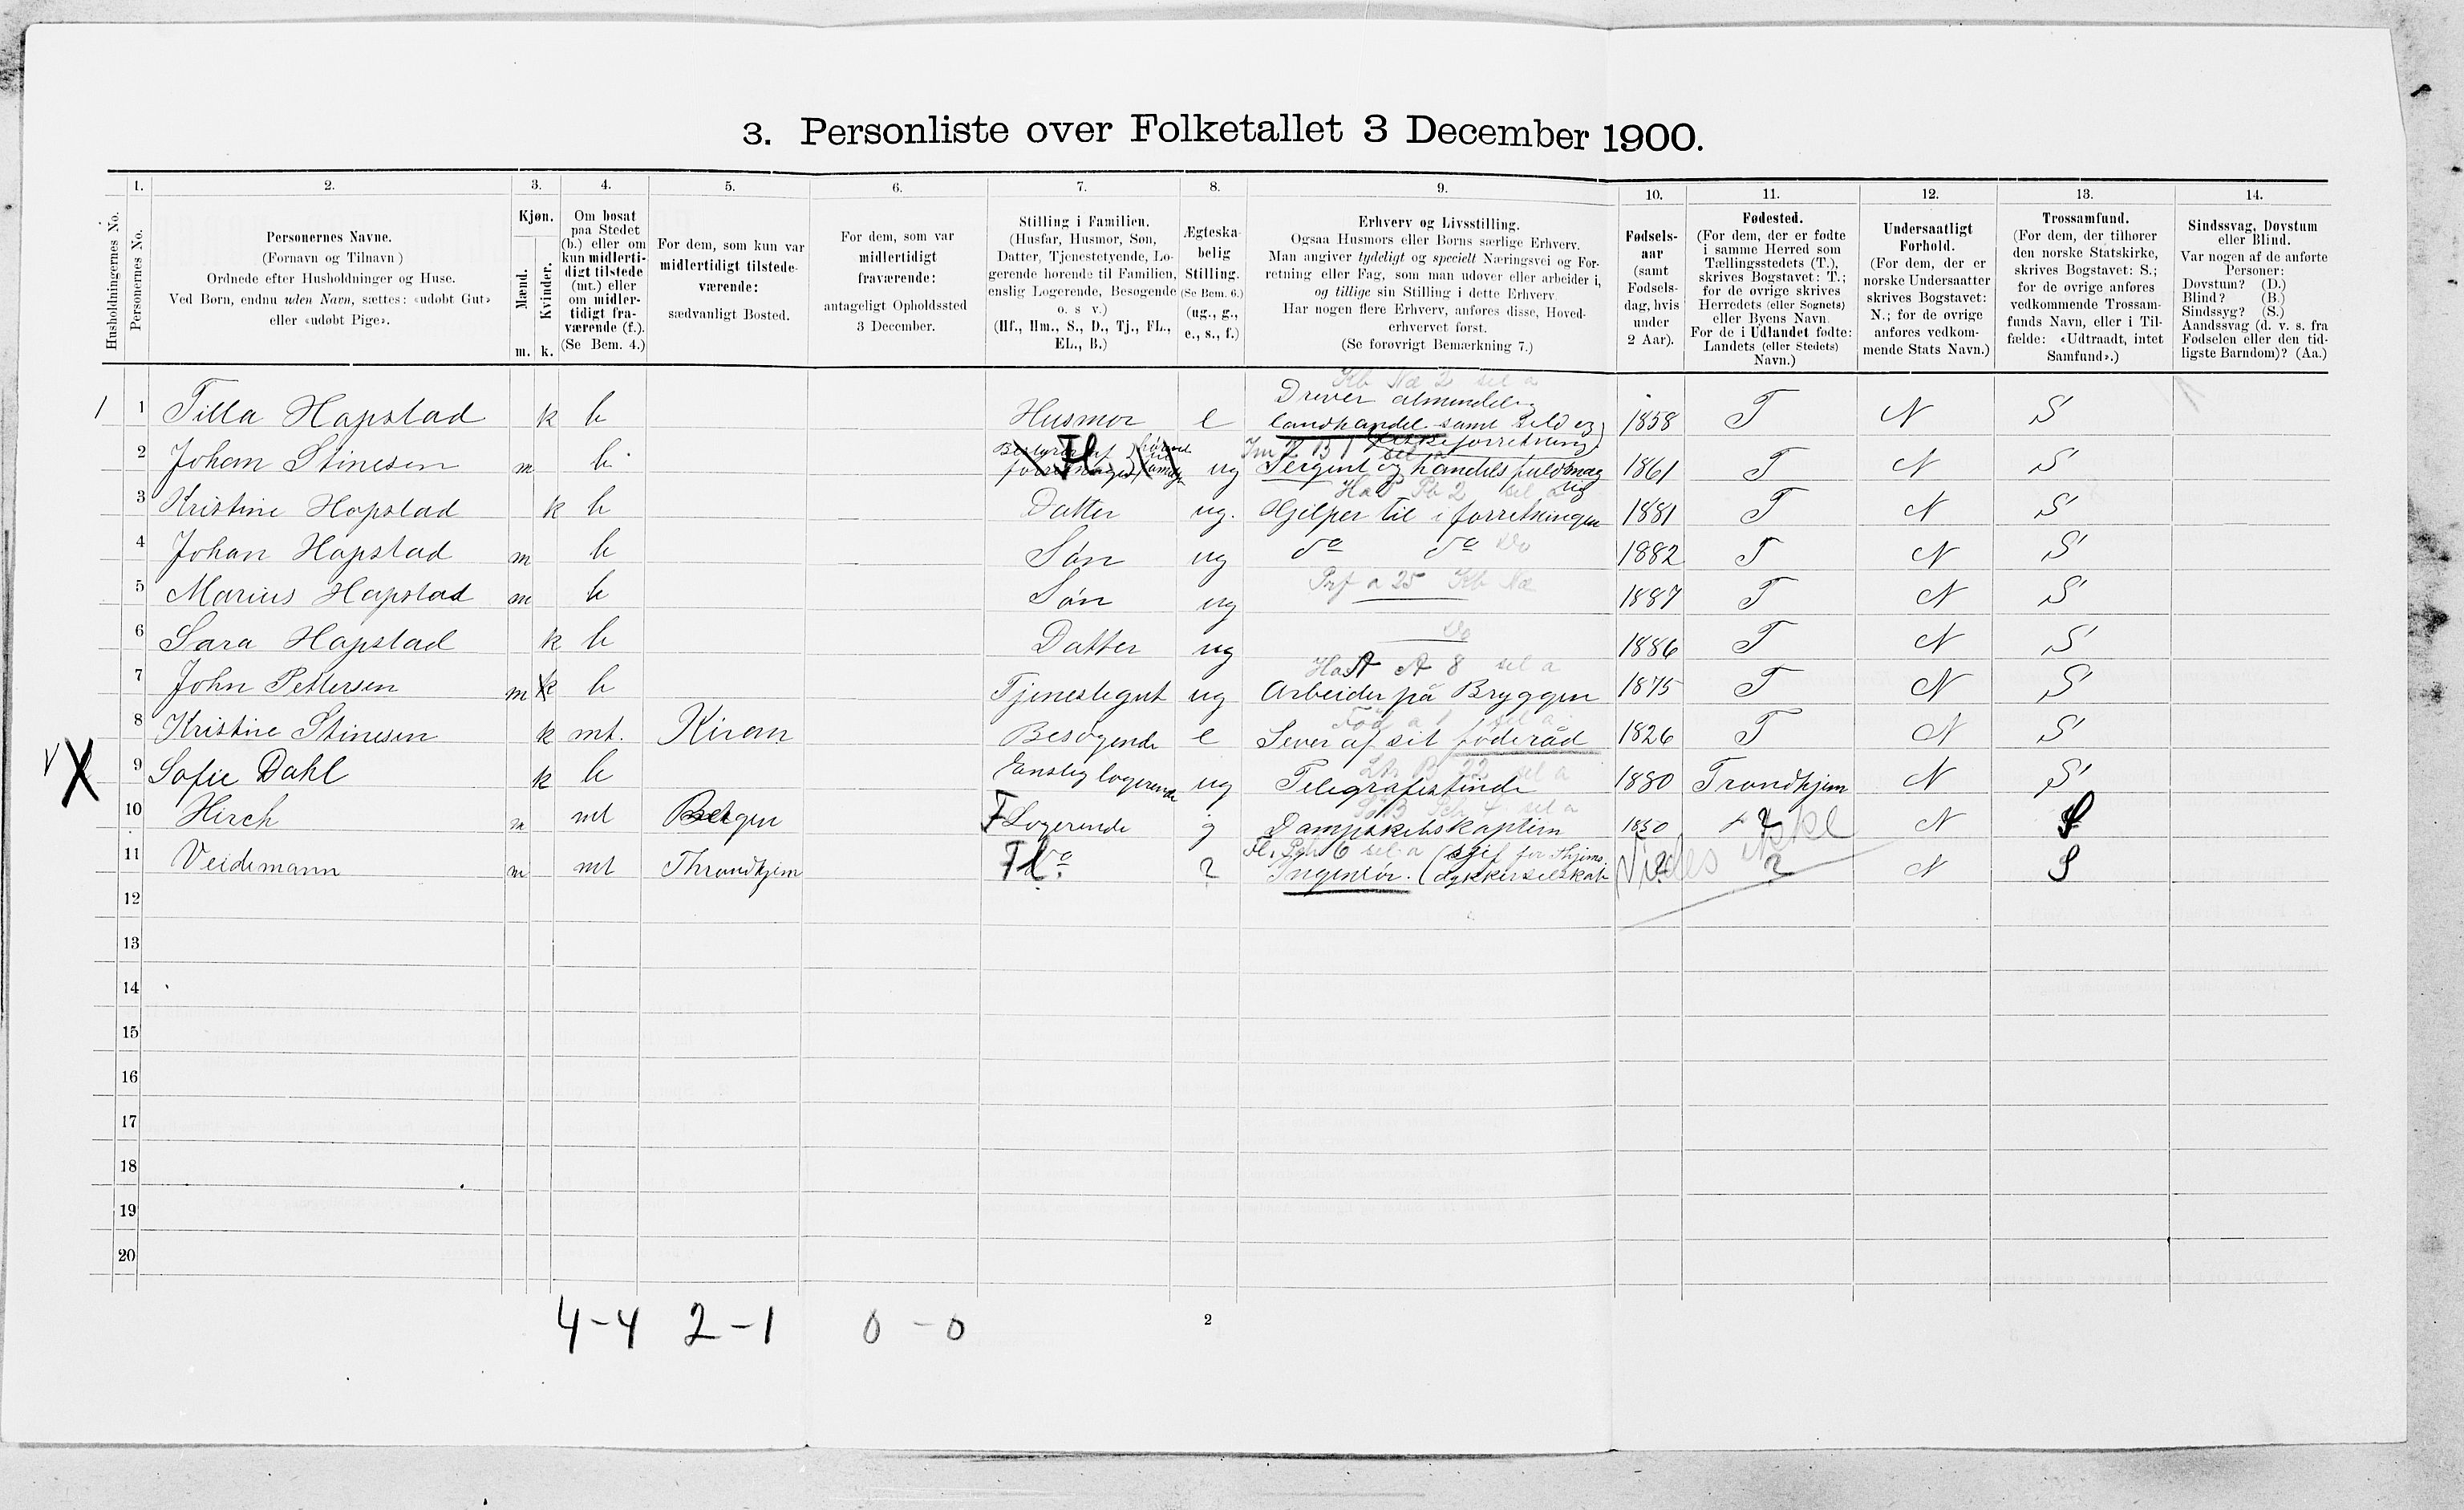 3. Personliste over Folketallet 3 December 1900.
1. 2. 3. 4. 5. 6. 7. 8. 9. 10. 11. 12. 13. 14.
Husholdningernes No.
Personernes No.
Personernes Navne.
(Fornavn og Tilnavn)
Ordnede efter Husholdninger og Huse.
Ved Børn, endnu uden Navn, sættes: «udøbt Gut»
eller «udøbt Pige».
Kjøn.
Mænd.
Kvinder.
m. k.
Om bosat
paa Stedet
(b.) eller om
kun midlerti-
digt tilstede
(mt.) eller
om midler-
tidigt fra-
værende (f.).
(Se Bem. 4.)
For dem, som kun var
midlertidigt tilstede-
værende:
sædvanligt Bosted.
For dem, som var
midlertidigt
fraværende:
antageligt Opholdssted
3 December.
Stilling i Familien.
(Husfar, Husmor, Søn,
Datter, Tjenestetyende, Lo-
gerende hørende til Familien,
enslig Logerende, Besøgende
o. s v.)
(Hf., Hm., S., D., Tj., FL.,
EL., B.)
Ægteska-
belig
Stilling.
(Se Bem. 6.)
(ug., g.,
e., s., f.)
Erhverv og Livsstilling.
Ogsaa Husmors eller Børns særlige Erhverv.
Man angiver tydeligt og specielt Næringsvei og For-
retning eller Fag, som man udøver eller arbeider i,
og tillige sin Stilling i dette Erhverv.
Har nogen flere Erhverv, anføres disse, Hoved-
erhvervet først.
(Se forøvrigt Bemærkning 7.)
Fødsels-
aar
(samt
Fødsels-
dag, hvis
under
2 Aar).
Fødested.
(For dem, der er fødte
i samme Herred som
Tællingsstedets (T.),
skrives Bogstavet: T.;
for de øvrige skrives
Herredets (eller Sognets)
eller Byens Navn.
For de i Udlandet fødte:
Landets (eller Stedets)
Navn.)
Undersaatligt
Forhold.
(For dem, der er
norske Undersaatter
skrives Bogstavet:
N.; for de øvrige
anføres vedkom-
mende Stats Navn.)
Trossamfund.
(For dem, der tilhører
den norske Statskirke,
skrives Bogstavet: S.;
for de øvrige anføres
vedkommende Trossam-
funds Navn, eller i Til-
fælde: «Udtraadt, intet
Samfund».)
Sindssvag, Døvstum
eller Blind.
Var nogen af de anførte
Personer:
Døvstum? (D.)
Blind? (B.)
Sindssyg? (S.)
Aandssvag (d. v. s. fra
Fødselen eller den tid-
ligste Barndom)? (Aa.)
Kb Næ 2 sel a
Driver almindelig
1 1 Tilla Hapstad k b Husmor e landhandel samt sild og 1858 T N S
fiskeforretning
2 Johan Stinesen m b Fl ug Sergent og handelsfuldmæg 1861 T N S
tig
3 Kristine Hapstad k b Datter ug. Hjelper til i forretningen 1881 T N S
4 Johan Hapstad m b Søn ug do do Do 1882 T N S
Prf a 25 Kb Næ
5 Marius Hapstad m b Søn ug 1887 T N S
Do
6 Sara Hapstad k b Datter ug 1886 T N S
sel a
7 John Pettersen m k b Tjenestegut ug Arbeider på Bryggen 1875 T N S
8 Kristine Stinesen k mt. Kiran Besøgende e Lever af sit føderåd 1826 T N S
V X 9 Sofie Dahl k b Enslig logerende ug Telegrafistinde 1880 Trondhjem N S
10 Hirch m mt Bergen F Logerende g Dampskibskaptein 1850 ? N S
Vides ikke
11 Veidemann m mt Throndhjem Fl do ? Ingeniør. (dykkerselskab ? ? N S
12
13
14
15
16
17
18
19
20
4-4 2-1 0-0
2